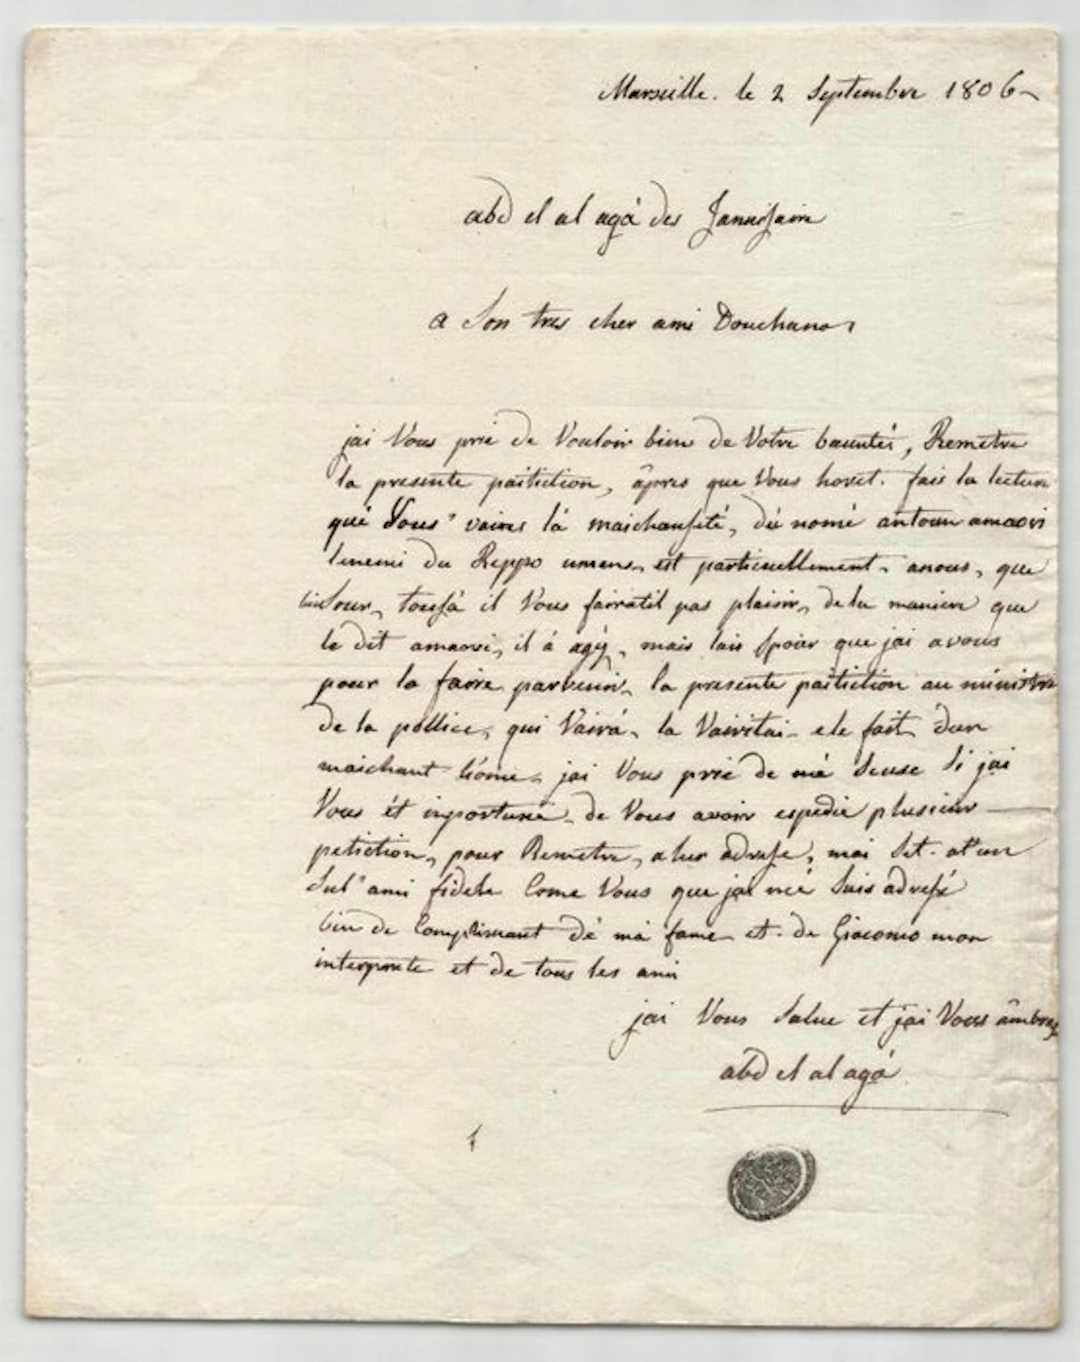 Marseille. le 2 Septembre 1806
abd el al agá des Janissaire
a Son tres cher ami Douchano
jai Vous prie de Vouloir bien de Votre bauntés, Remetre
la presente paitiction, âpres que Vous horet. fais la lecture
qué Vous vaires lá maichanseté, dú nomé antoun amaovi
lenemi du Reppo umens, est particuellement anous, que
bin Sour, tousá il Vous fairatil pas plaisir, de la maniere que
le dit amaovi, il á agÿ, mais lais spoir que jai avous
pour la faire parvenir, la presente paitiction au ministre
de la pollice, qui Vairá, la Vairitai ele fait dun
maichant hóme, jai Vous prie de mé Scuse Si jai
Vous ét inportuné de Vous avoir espedie plusieur
petiction, pour Remetre, a lur adresse, mai Set. at'un
Sul ami fidele Come Vous que jai mé Suis adressé
bin de Complimant dé má fame et. de Giacomo mon
interprete et de tous les ami
jai Vous Salue et jai Vous âmbras
abd el al agá